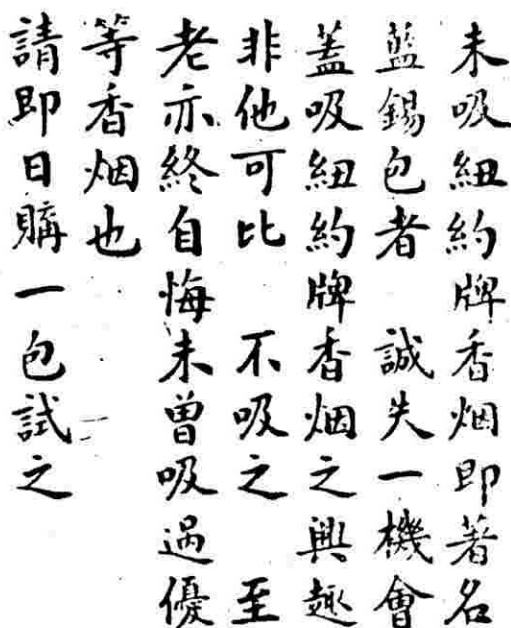 未吸紐約牌香烟即著名
藍錫包者　誠失一機會
蓋吸紐約牌香烟之興趣
非他可比　不吸之　至
老亦終自悔未曾吸過優
等香烟也
請即日購一包試之